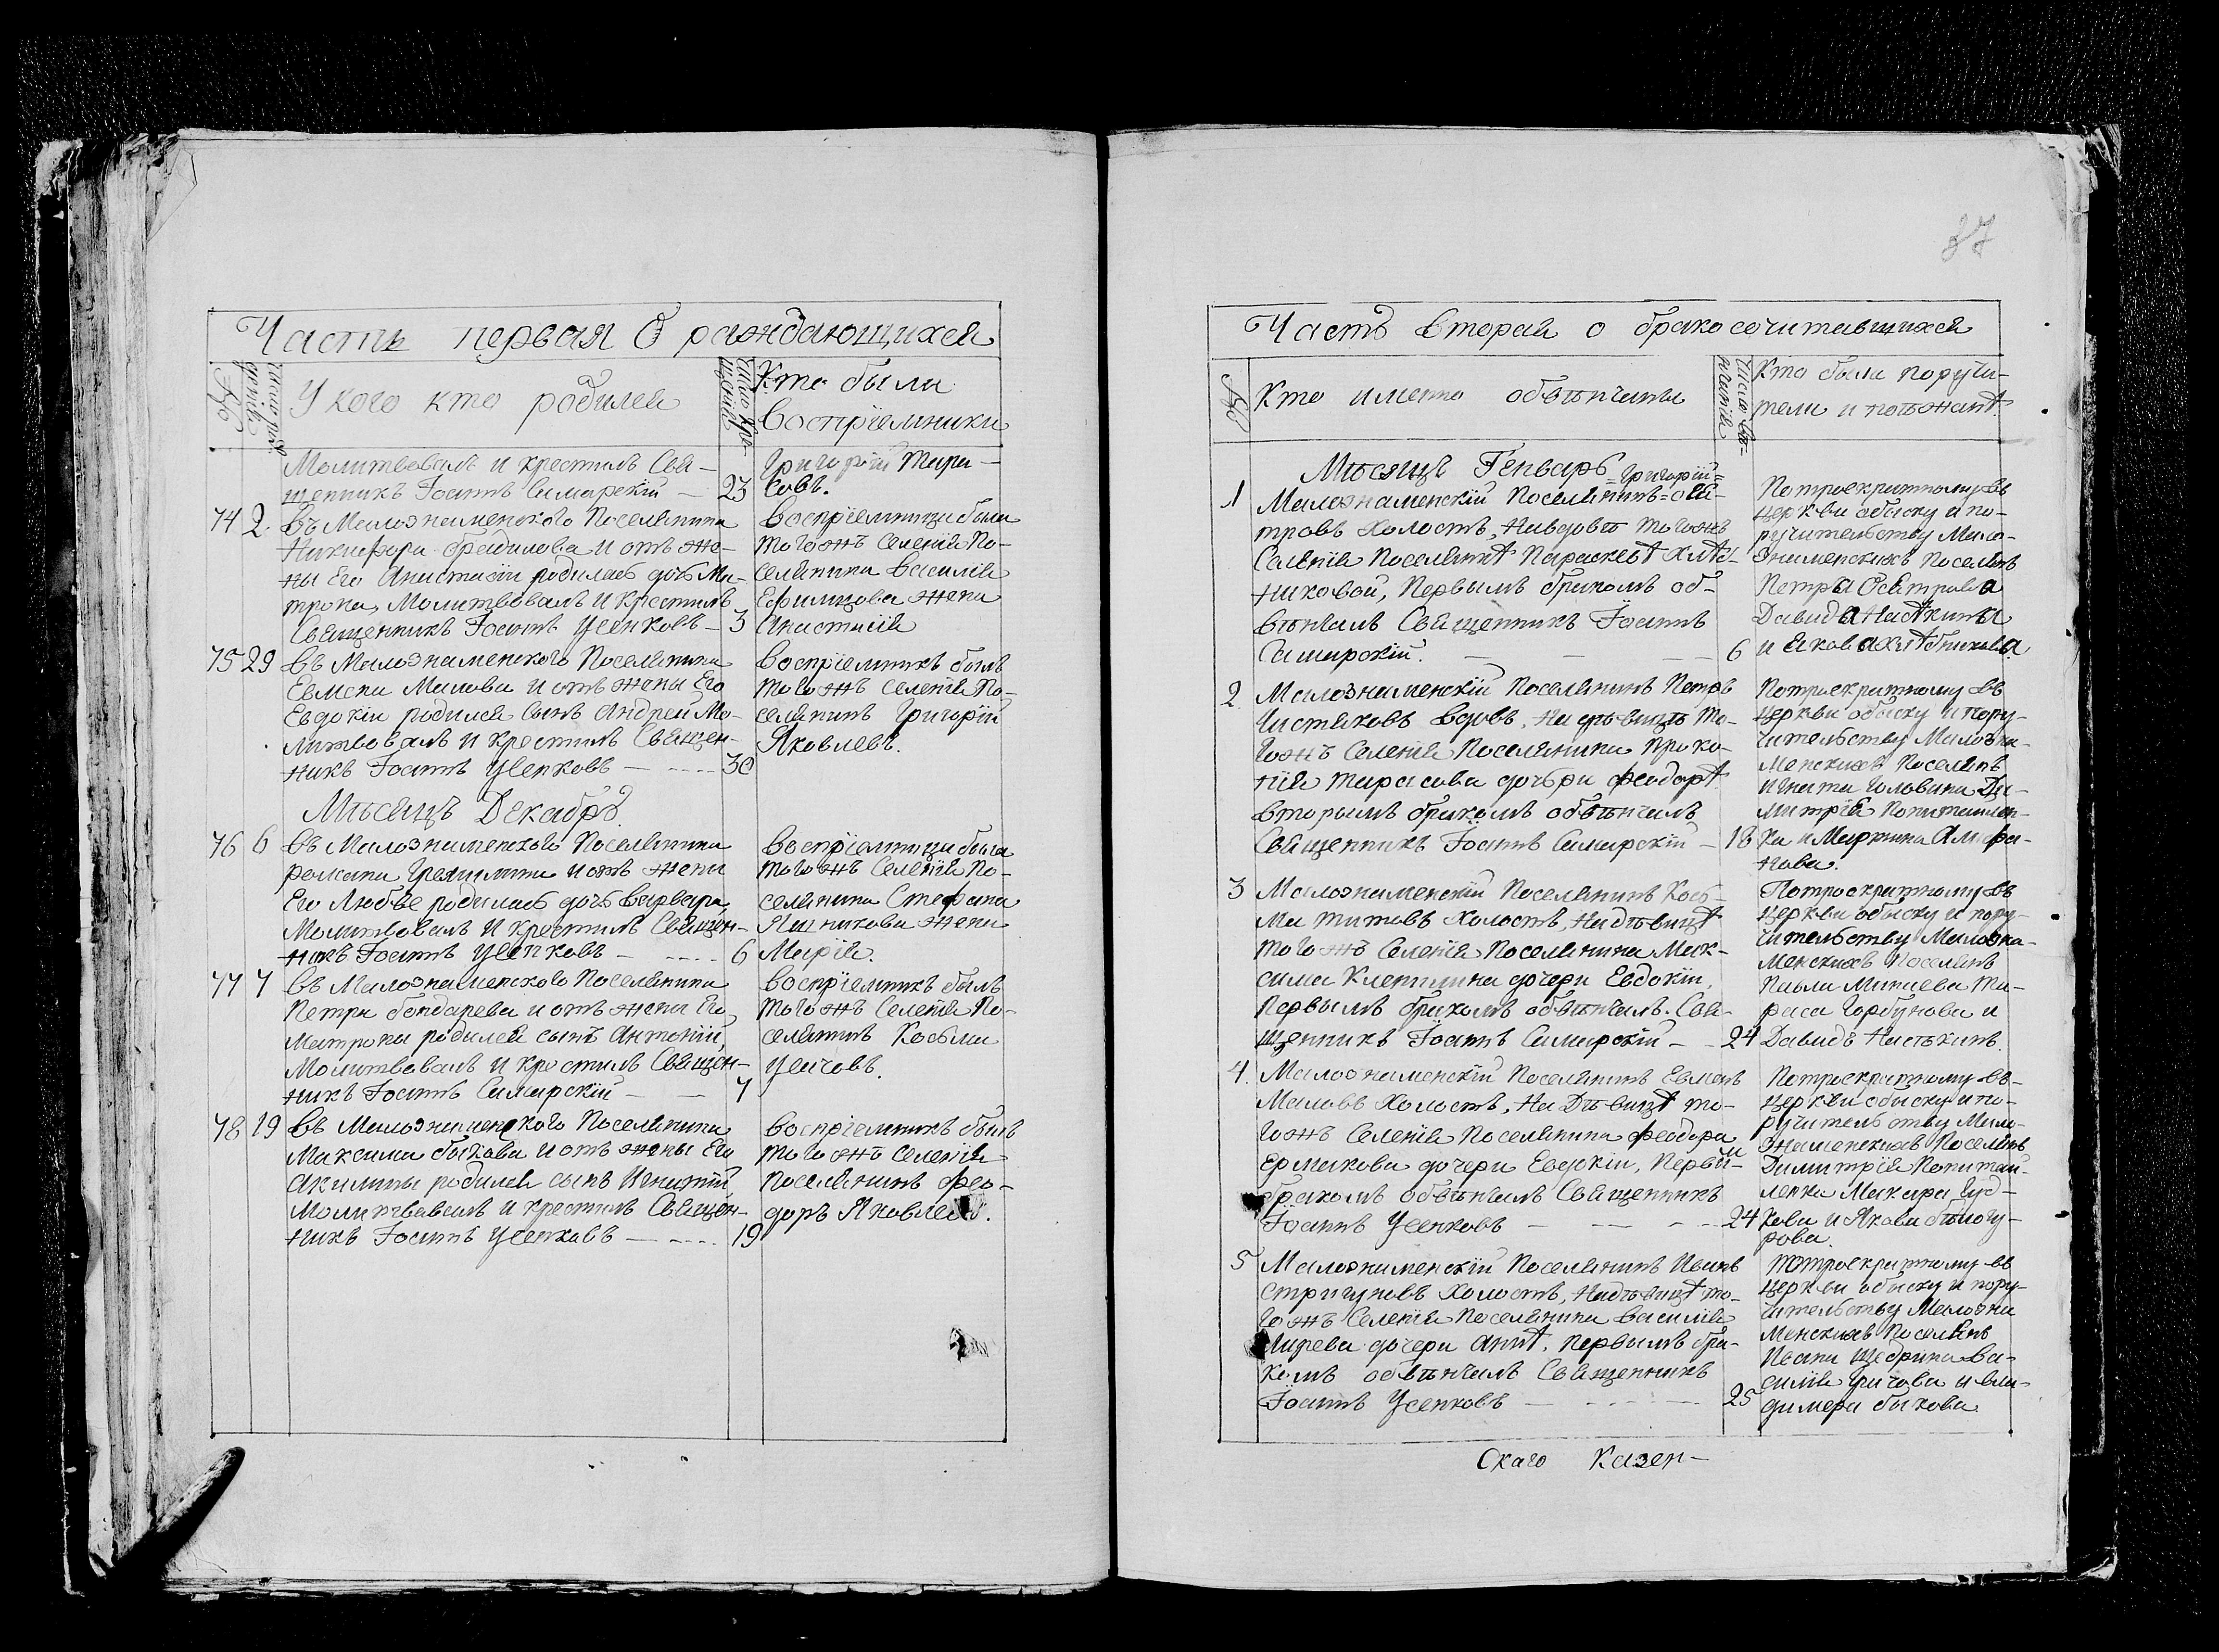 Часть первая О раждающихся
№
Число рождений
У кого кто родился
Число крещений
Кто были
Воспріемники
Молитвовалъ и крестилъ Свя-
щенникъ Іоаннъ Самарскій — 23
Григорій Тара-
совъ.
74 2. въ Малознаменского Поселянина
Никифора бредилова и отъ же-
ны Его Анастасіи родилась дочь Ма-
трона, Молитвовалъ и крестилъ
Священникъ Іоаннъ Усенковъ — 3
Воспріемница была
того жъ Селенія По-
селянина Василія
Ефимцова жена
Анастасія
75 29 въ Малознаменского Поселянина
Евмена Малова и отъ жены Его
Евдокіи родился сынъ Андрей Мо-
литвовалъ и крестилъ Священ-
никъ Іоаннъ Усенковъ — 30
Воспріемникъ былъ
того жъ Селенія По-
селянинъ Григорій
Яковлевъ.
Мѣсяцъ Декабрь
76 6 въ Малознаменского Поселянина
романа и отъ жены
Его Любве родилась дочь Варвара
Молитвовалъ и крестилъ Священ-
никъ Іоаннъ Усенковъ — 6
Воспріемница была
того жъ Селенія По-
селянина Стефана
жена
Марія.
77 7 въ Малознаменского Поселянина
Петра бондарева и отъ жены Его
Матроны родился сынъ Антоній,
Молитвовалъ и крестилъ Священ-
никъ Іоаннъ Самарскій — 7
Воспріемникъ былъ
того жъ Селенія По-
селянинъ Косьма
78 19 въ Малознаменского Поселянина
Максима быкова и отъ жены Его
Акилины родился сынъ Игнатій
Молитвовалъ и крестилъ Священ-
никъ Іоаннъ Усенковъ — 19
Воспріемникъ былъ
того жъ Селенія
Поселянинъ Фео-
доръ Яковлевъ.
37
Часть вторая о бракосочитавшихся
№
Кто именно обвѣнчаны
Число вѣнчаній
Кто были поручи-
тели и поѣзжанѣ
Мѣсяцъ Генварь
=Григорій=
1 Малознаменскій Поселянинъ= Осѣ-
тровъ холостъ, на вдовѣ того жъ
Селенія Поселянкѣ Параскевѣ Хлѣб-
никовой, Первымъ бракомъ об-
вѣнчалъ Священникъ Іоаннъ
Самарскій. — — — 6
По троекратному въ
церкви обыску и по-
ручительству Мало-
знаменскихъ Поселянъ
Петра Осѣтрова
Давида Насѣкина
и Якова Хлѣбникова.
2. Малознаменскій Поселянинъ Петръ
Чистяковъ вдовъ, на дѣвицѣ то-
гожъ Селенія Поселянина Проко-
пія Тарасова дочьри Феодорѣ
вторымъ бракомъ обвѣнчалъ
Священникъ Іоаннъ Самарскій — 18
По троекратному въ
церкви обыску и пору-
чительству Малозна-
менскихъ Поселянъ
Игната Головина Ди-
митрія Капитанен-
ка и Мартина Алифа-
нова.
3 Малознаменскій Поселянинъ Козь-
ма Титовъ холостъ, на дѣвицѣ
того жъ Селенія Поселянина Мак-
сима Клетшина дочери Евдокіи,
Первымъ бракомъ обвѣнчалъ Свя-
щенникъ Іоаннъ Самарскій — 24
По троекратному въ
церкви обыску и пору-
чительству Малозна-
менскихъ Поселянъ
Павла Минаева Та-
раса Горбунова и
Давидъ Насѣкинъ.
4. Малознаменскій Поселянинъ Евменъ
Маловъ Холостъ, на Дѣвицѣ то-
гожъ Селенія Поселянина Феодора
Ермакова дочери Евдокіи, Первым
бракомъ обвѣнчалъ Священникъ
Іоаннъ Усенковъ — 24
По троекратному въ
церкви обыску и по-
ручительству Мало-
знаменскихъ Поселянъ
Димитрія Капитан-
ленка Макара Гуд-
кова и Якова бѣлогу-
рова.
5 Малознаменскій Поселянинъ Иванъ
Стригуновъ Холостъ, на дѣвицѣ то-
гожъ Селенія Поселянина Василія
дочери Аннѣ, Первымъ бра-
комъ обвѣнчалъ Священникъ
Іоаннъ Усенковъ — 25
По троекратному въ
церкви обыску и пору-
чительству Малозна
менскихъ Поселянъ
Ивана Щедрина Ва-
силія и Вла-
димера быкова
Скаго Казен-